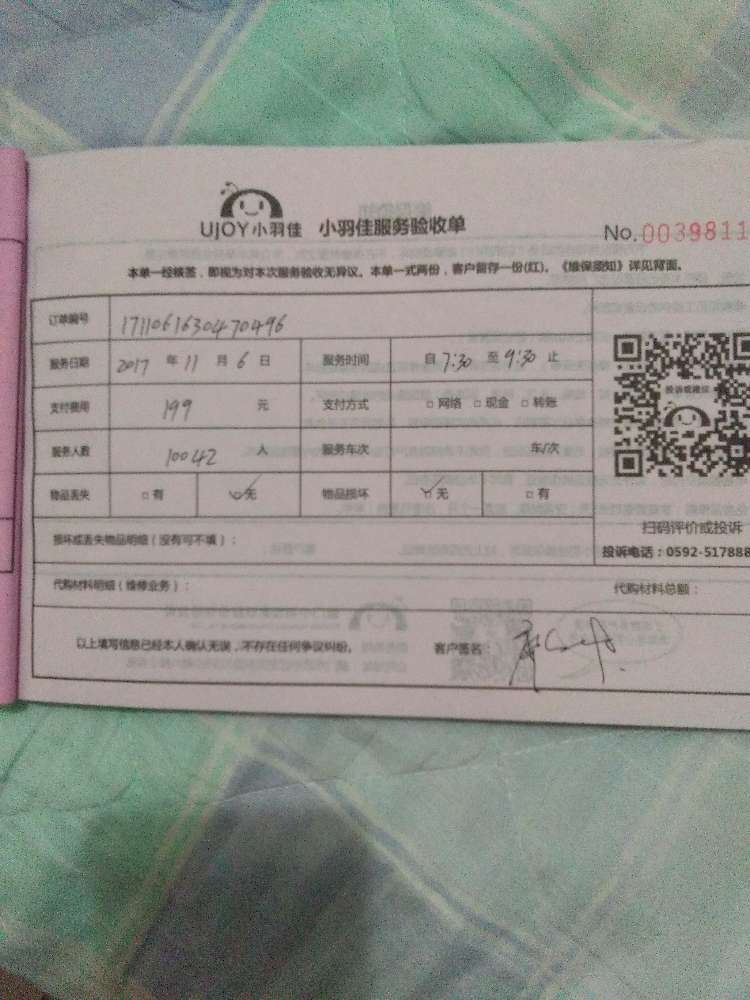 UJOY小羽佳 小羽佳服务验收单 No.0039811
本单一经核签，即视为对本次服务验收无异议。本单一式两份，客户留存一份(红)。《维保须知》详见背面。
订单编号 1711061630470496
服务日期 2017 年 11 月 6 日 服务时间 自 7:30 至 9:30 止
支付费用 199 元 支付方式 □ 网络 □ 现金 □ 转账
服务人数 10042 人 服务车次 车/次
物品丢失 □ 有 □ 无 物品损坏 □ 无 □ 有
投诉或建议
扫码评价或投诉
损坏或丢失物品明细（没有可不填）： 投诉电话：0592-517888
代购材料明细（维修业务）： 代购材料总额：
以上填写信息已经本人确认无误，不存在任何争议纠纷。 客户签名：